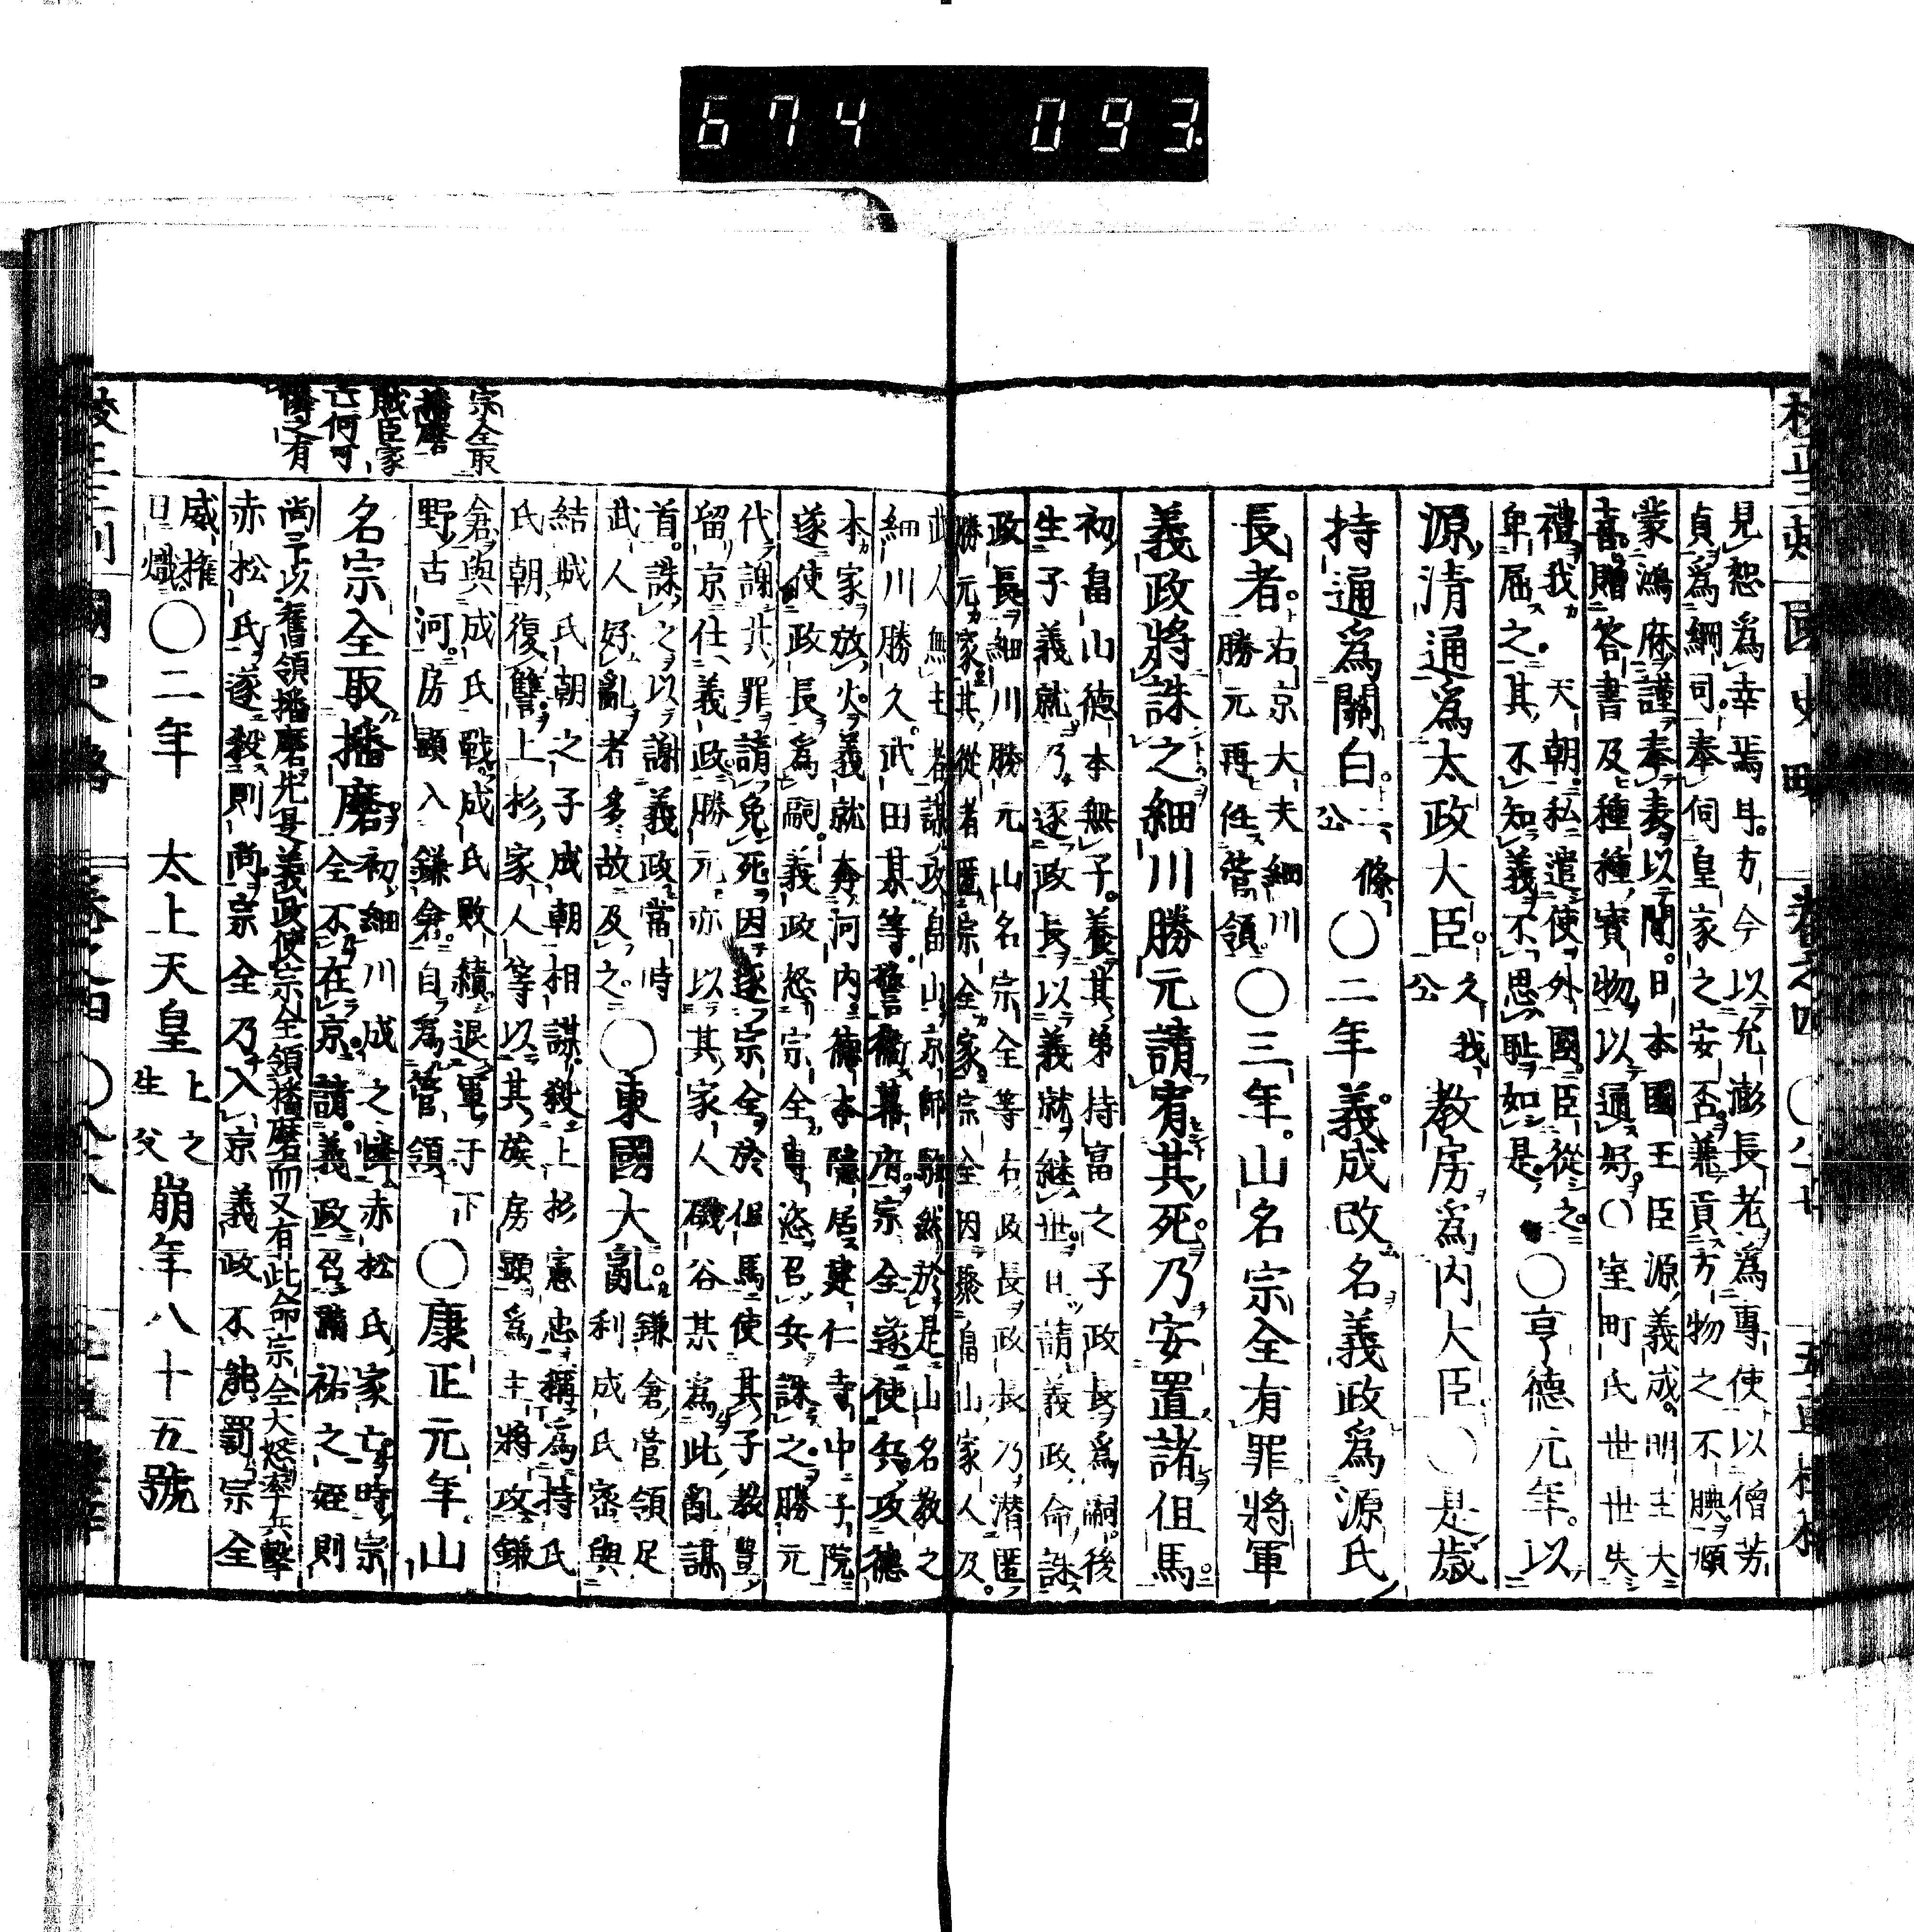 674 093
見恕爲幸焉耳方今以允澎長老爲專使以僧芳
貞爲綱司奉伺皇家之安否兼貢方物之不腆頫
蒙鴻庥謹奉表以聞日本國王臣源義成明主大
喜贈答書及種種寳物以通好〇室町氏世世失
禮我天朝私遣使外國臣從之
卑屈之其不知義不思耻如是〇亨德元年以
源清通爲太政大臣久我公教房爲內大臣〇是歲
持通爲關白二條公〇二年義成改名義政爲源氏
長者右京大夫細川勝元再任管領〇三年山名宗全有罪將軍
義政將誅之細川勝元請宥其死乃安置諸但馬
初畠山德本無子養其弟持富之子政長爲嗣後
生子義就乃逐政長以義就繼世日請義政命誅
政長細川勝元山名宗全等右政長政長乃潜匿
勝元家其從者匿宗全家宗全因聚畠山家人及
武人無主者謀攻畠山京師騷然於是山名教之
細川勝久武田某等警衞幕府宗全遂使兵攻德
本家放火義就奔河內德本隱居建仁寺中子院
遂使政長爲嗣義政怒宗全專恣召兵誅之勝元
代謝其罪請免死因逐宗全於但馬使其子教豐
留京仕義政勝元亦以其家人磯谷某爲此亂謀
首誅之以謝義政當時
武人好亂者多故及之〇東國大亂鎌倉管領足利成氏密與
結城氏朝之子成朝相謀殺上杉憲忠稱爲持氏
氏朝復讐上杉家人等以其族房顯爲主將攻鎌
倉與成氏戰成氏敗績退軍于下
野古河房顯入鎌倉自爲管領〇康正元年山
名宗全取播磨初細川成之憐赤松氏家亡時宗
全不在京請義政召滿祐之姪則
尚予以舊領播磨先是義政使宗全領播磨而又有此命宗全大怒率兵擊
赤松氏遂殺則尚宗全乃入京義政不能罰宗全
威權日熾〇二年太上天皇上之生父崩年八十五號
宗全取
播磨
賊臣家
亡何可
憐之有